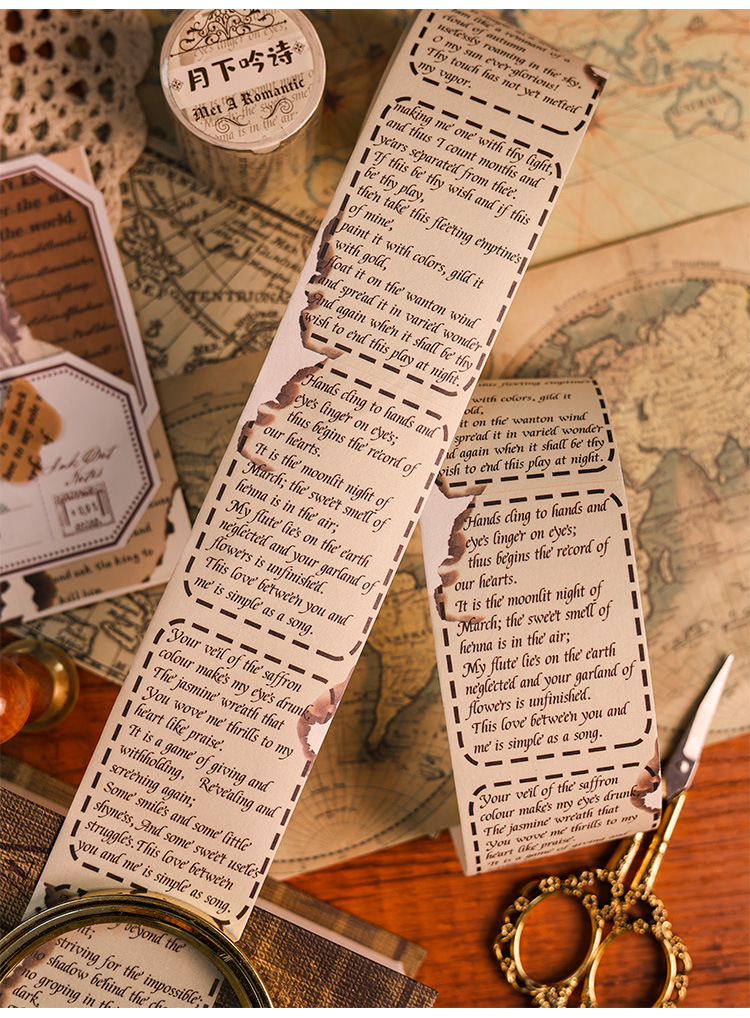 月下吟诗
Met A Romantic
cloud of autumn
uselessly roaming in the sky,
O my sun ever-glorious!
Thy touch has not yet melted
my vapor,
making me one with thy light,
and thus I count months and
years separated from thee.
If this be thy wish and if this
be thy play,
then take this fleeting emptines
of mine,
paint it with colors, gild it
with gold,
float it on the wanton wind
and spread it in varied wonder
And again when it shall be thy
wish to end this play at night.
Hands cling to hands and
eyes linger on eyes;
thus begins the record of
our hearts.
It is the moonlit night of
March; the sweet smell of
henna is in the air;
My flute lies on the earth
neglected and your garland of
flowers is unfinished.
This love between you and
me is simple as a song.
Your veil of the saffron
colour makes my eyes drunk
The jasmine wreath that
You wove me thrills to my
heart like praise.
It is a game of giving and
withholding, Revealing and
screening again;
Some smiles and some little
shyness, And some sweet useles
struggles. This love between
you and me is simple as song.
beyond the
striving for the impossible;
no shadow behind the
no groping in the
dark,
with colors, gild it
it on the wanton wind
spread it in varied wonder
again when it shall be thy
wish to end this play at night.
Hands cling to hands and
eyes linger on eyes;
thus begins the record of
our hearts.
It is the moonlit night of
March; the sweet smell of
henna is in the air;
My flute lies on the earth
neglected and your garland of
flowers is unfinished.
This love between you and
me is simple as a song.
Your veil of the saffron
colour makes my eyes drunk
The jasmine wreath that
You wove me thrills to my
heart like praise.
It is a game of giving and
the world.
Notes
and ask the king to
kill him